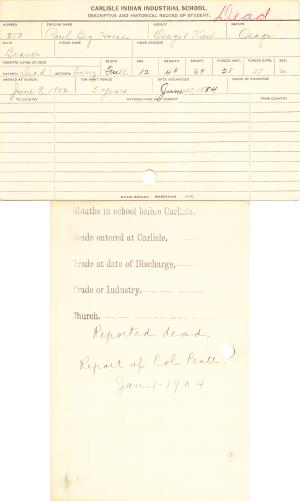 CARLISLE INDIAN INDUSTRIAL SCHOOL.
DESCRIPTIVE AND HISTORICAL RECORD OF STUDENT. Dead
NUMBER ENGLISH NAME AGENCY NATION
253 Paul Big Horse Osage & Kaw Osage
BAND INDIAN NAME HOME ADDRESS
Beaver
PARENTS LIVING OR DEAD BLOOD AGE HEIGHT WEIGHT FORCED INSP. FORCED EXPR. SEX.
FATHER Dead MOTHER Living Full 12 69 28 25 M.
ARRIVED AT SCHOOL FOR WHAT PERIOD DATE DISCHARGED CAUSE OF DISCHARGE
June 9, 1882 5 years June 17, 1884
TO COUNTRY PATRONS NAME AND ADDRESS FROM COUNTRY
Months in school before Carlisle,
Grade entered at Carlisle,
Grade at date of Discharge,
Trade or Industry,
Church,
Reported dead.
Report of Col Pratt.
Jan. 1-1904